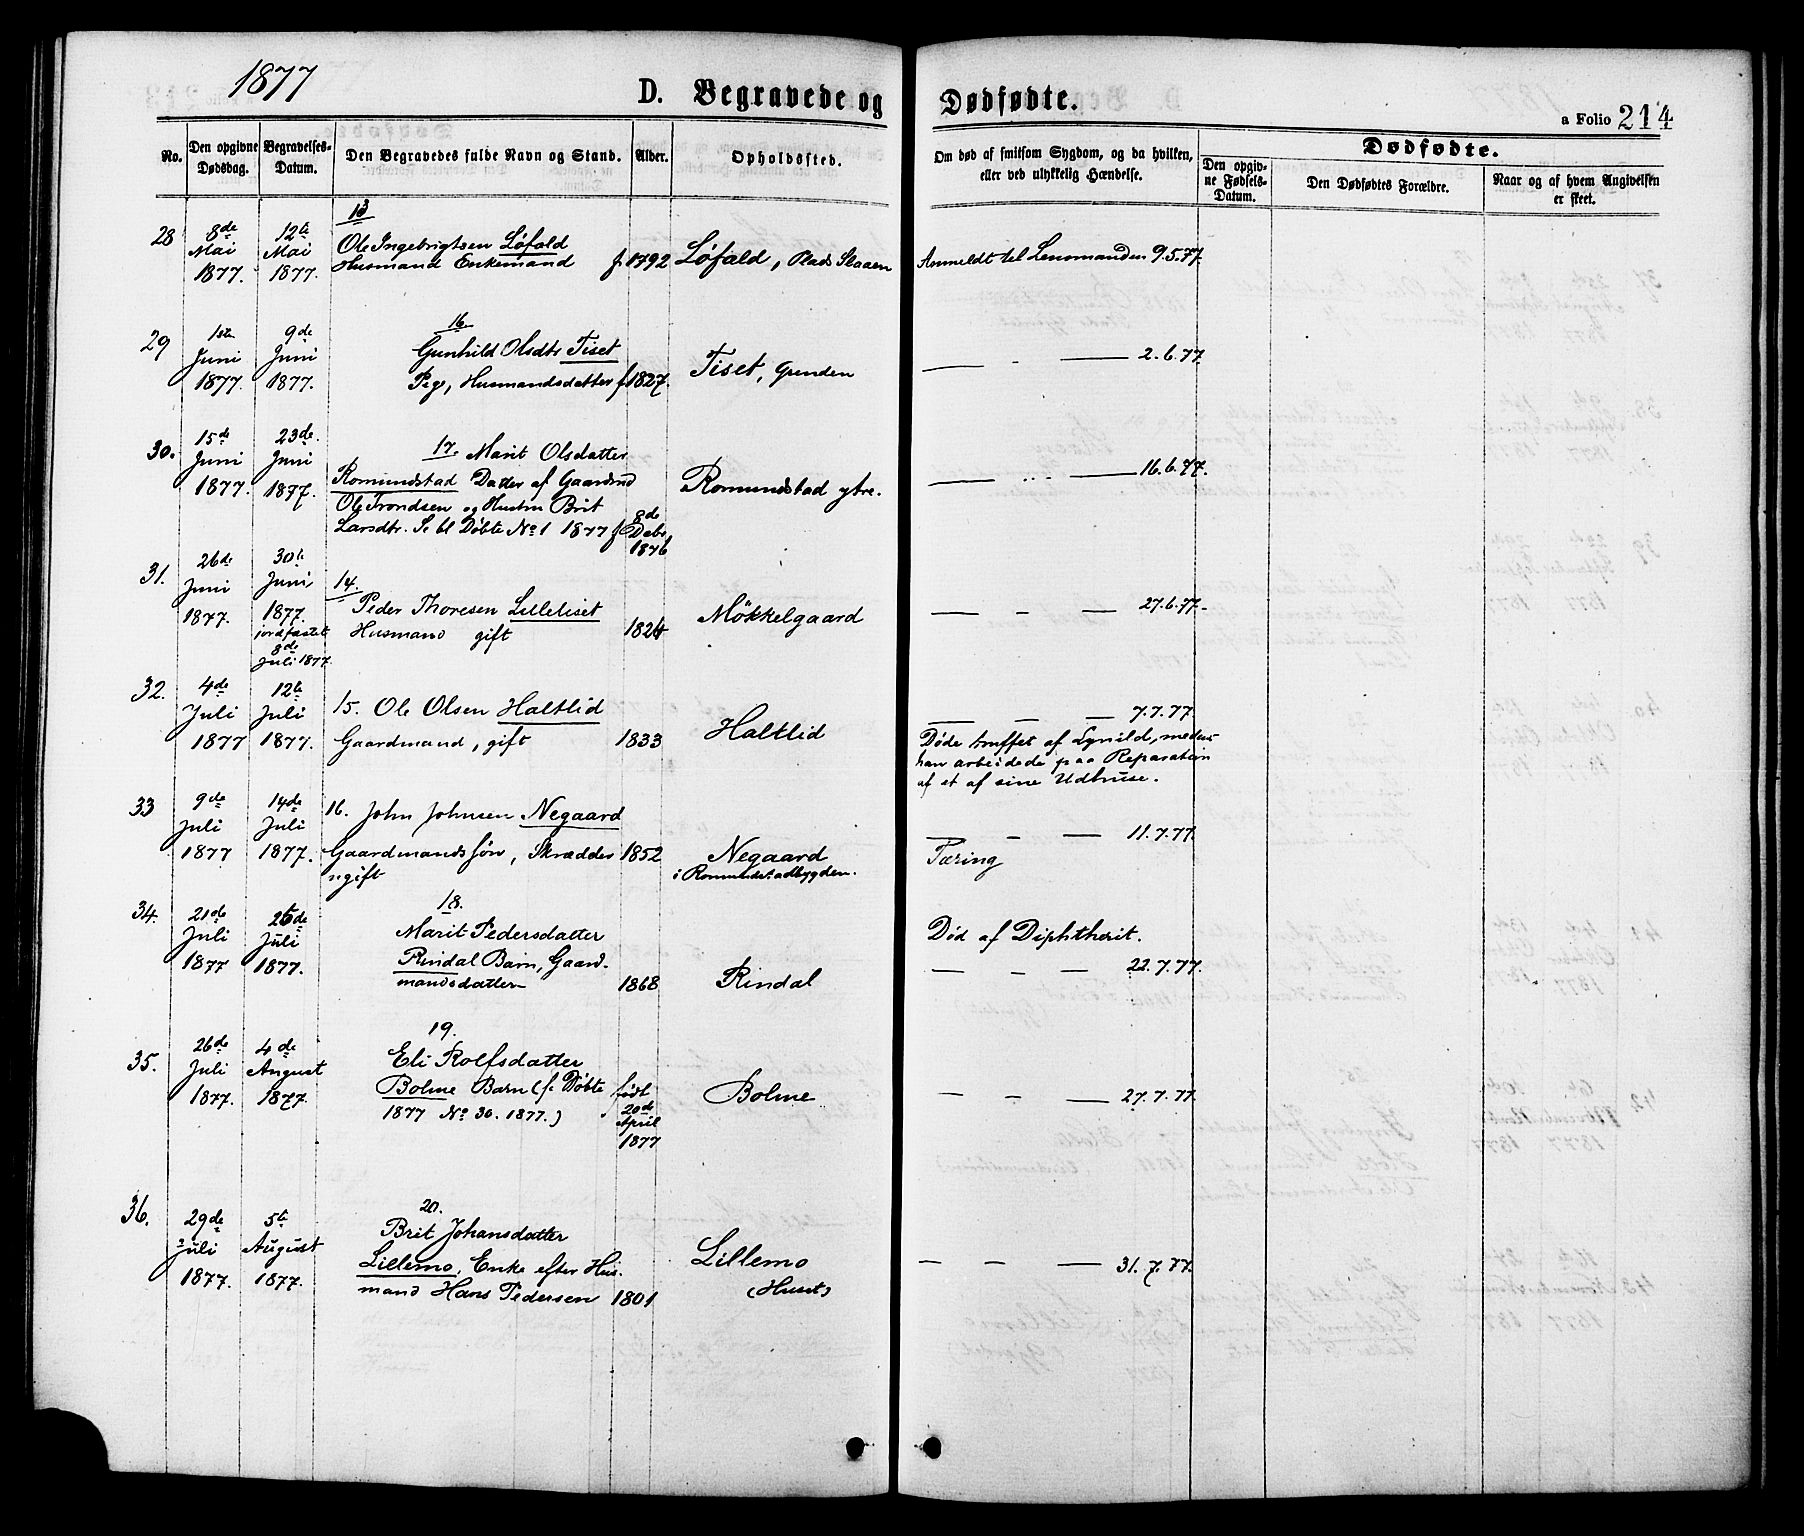 1877
D. Begravede og Dødfødte.
a Folio 214
No.
Den opgivne Dødsdag.
Begravelses-Datum.
Den Begravedes fulde Navn og Stand.
Alder.
Opholdssted.
Om død af smitsom Sygdom, og da hvilken, eller ved ulykkelig Hændelse.
Dødfødte.
Den opgivne Fødsels-Datum.
Den Dødfødtes Forældre.
Naar og af hvem Angivelsen er skeet.
28 8de Mai 1877. 12te Mai 1877.
13
Ole Ingebrigtsen Løfald
Husmand Enkemand f 1792
Løfald, Plads Slaaen
Anmeldt til Lensmanden 9.5.77.
29 1ste Juni 1877. 9de Juni 1877.
16
Gunhild Olsdtr Tiset
Pige, Husmandsdatter f 1827.
Tiset, Grinden
— - — 2.6.77
30. 15de Juni 1877. 23de Juni 1877.
17. Marit Olsdatter
Romundstad Datter af Gaardmd
Ole Trondsen og Hustru Brit
Larsdtr. Se bl Døbte No 1 1877 f
8de Decbr 1876
Romundstad ytre.
— ... — 16.6.77.
31. 26de Juni 1877. 30te Juni 1877. jordfæstet 8de Juli 1877.
14.
Peder Thoresen Lilletiset
Husmand gift 1824
Møkkelgaard
— - — 27.6.77.
32. 4de Juli 1877 12te Juli 1877.
15. Ole Olsen Haltlid
Gaardmand, gift 1833
Haltlid
— - — 7.7.77.
Døde truffet af Lynild, medens
han arbeidede paa Reparation
af et af sine Udhuse.
33 9de Juli 1877 14de Juli 1877.
16. John Johnsen Negaard
Gaardmandssøn, Skrædder 1852
ugift
Negaard
i Romundstadbygden.
— - — 11.7.77.
Tæring
34. 21de Juli 1877 25de Juli 1877.
18.
Marit Pedersdatter
Rindal Barn, Gaard-
mandsdatter 1868
Rindal
Død af Diphtherit.
— - — 22.7.77.
35. 26de Juli 1877. 4de August 1877.
19.
Eli Rolfsdatter
Bolme Barn (f. Døbte
1877 No 30. 1877.)
født 20de April 1877
Bolme
— - — 27.7.77.
36. 29de Juli 1877. 5te August 1877.
20.
Brit Johansdatter
Lillemo, Enke efter Hus-
mand Hans Pedersen 1801
Lillemo
(Huset)
— - — 31.7.77.